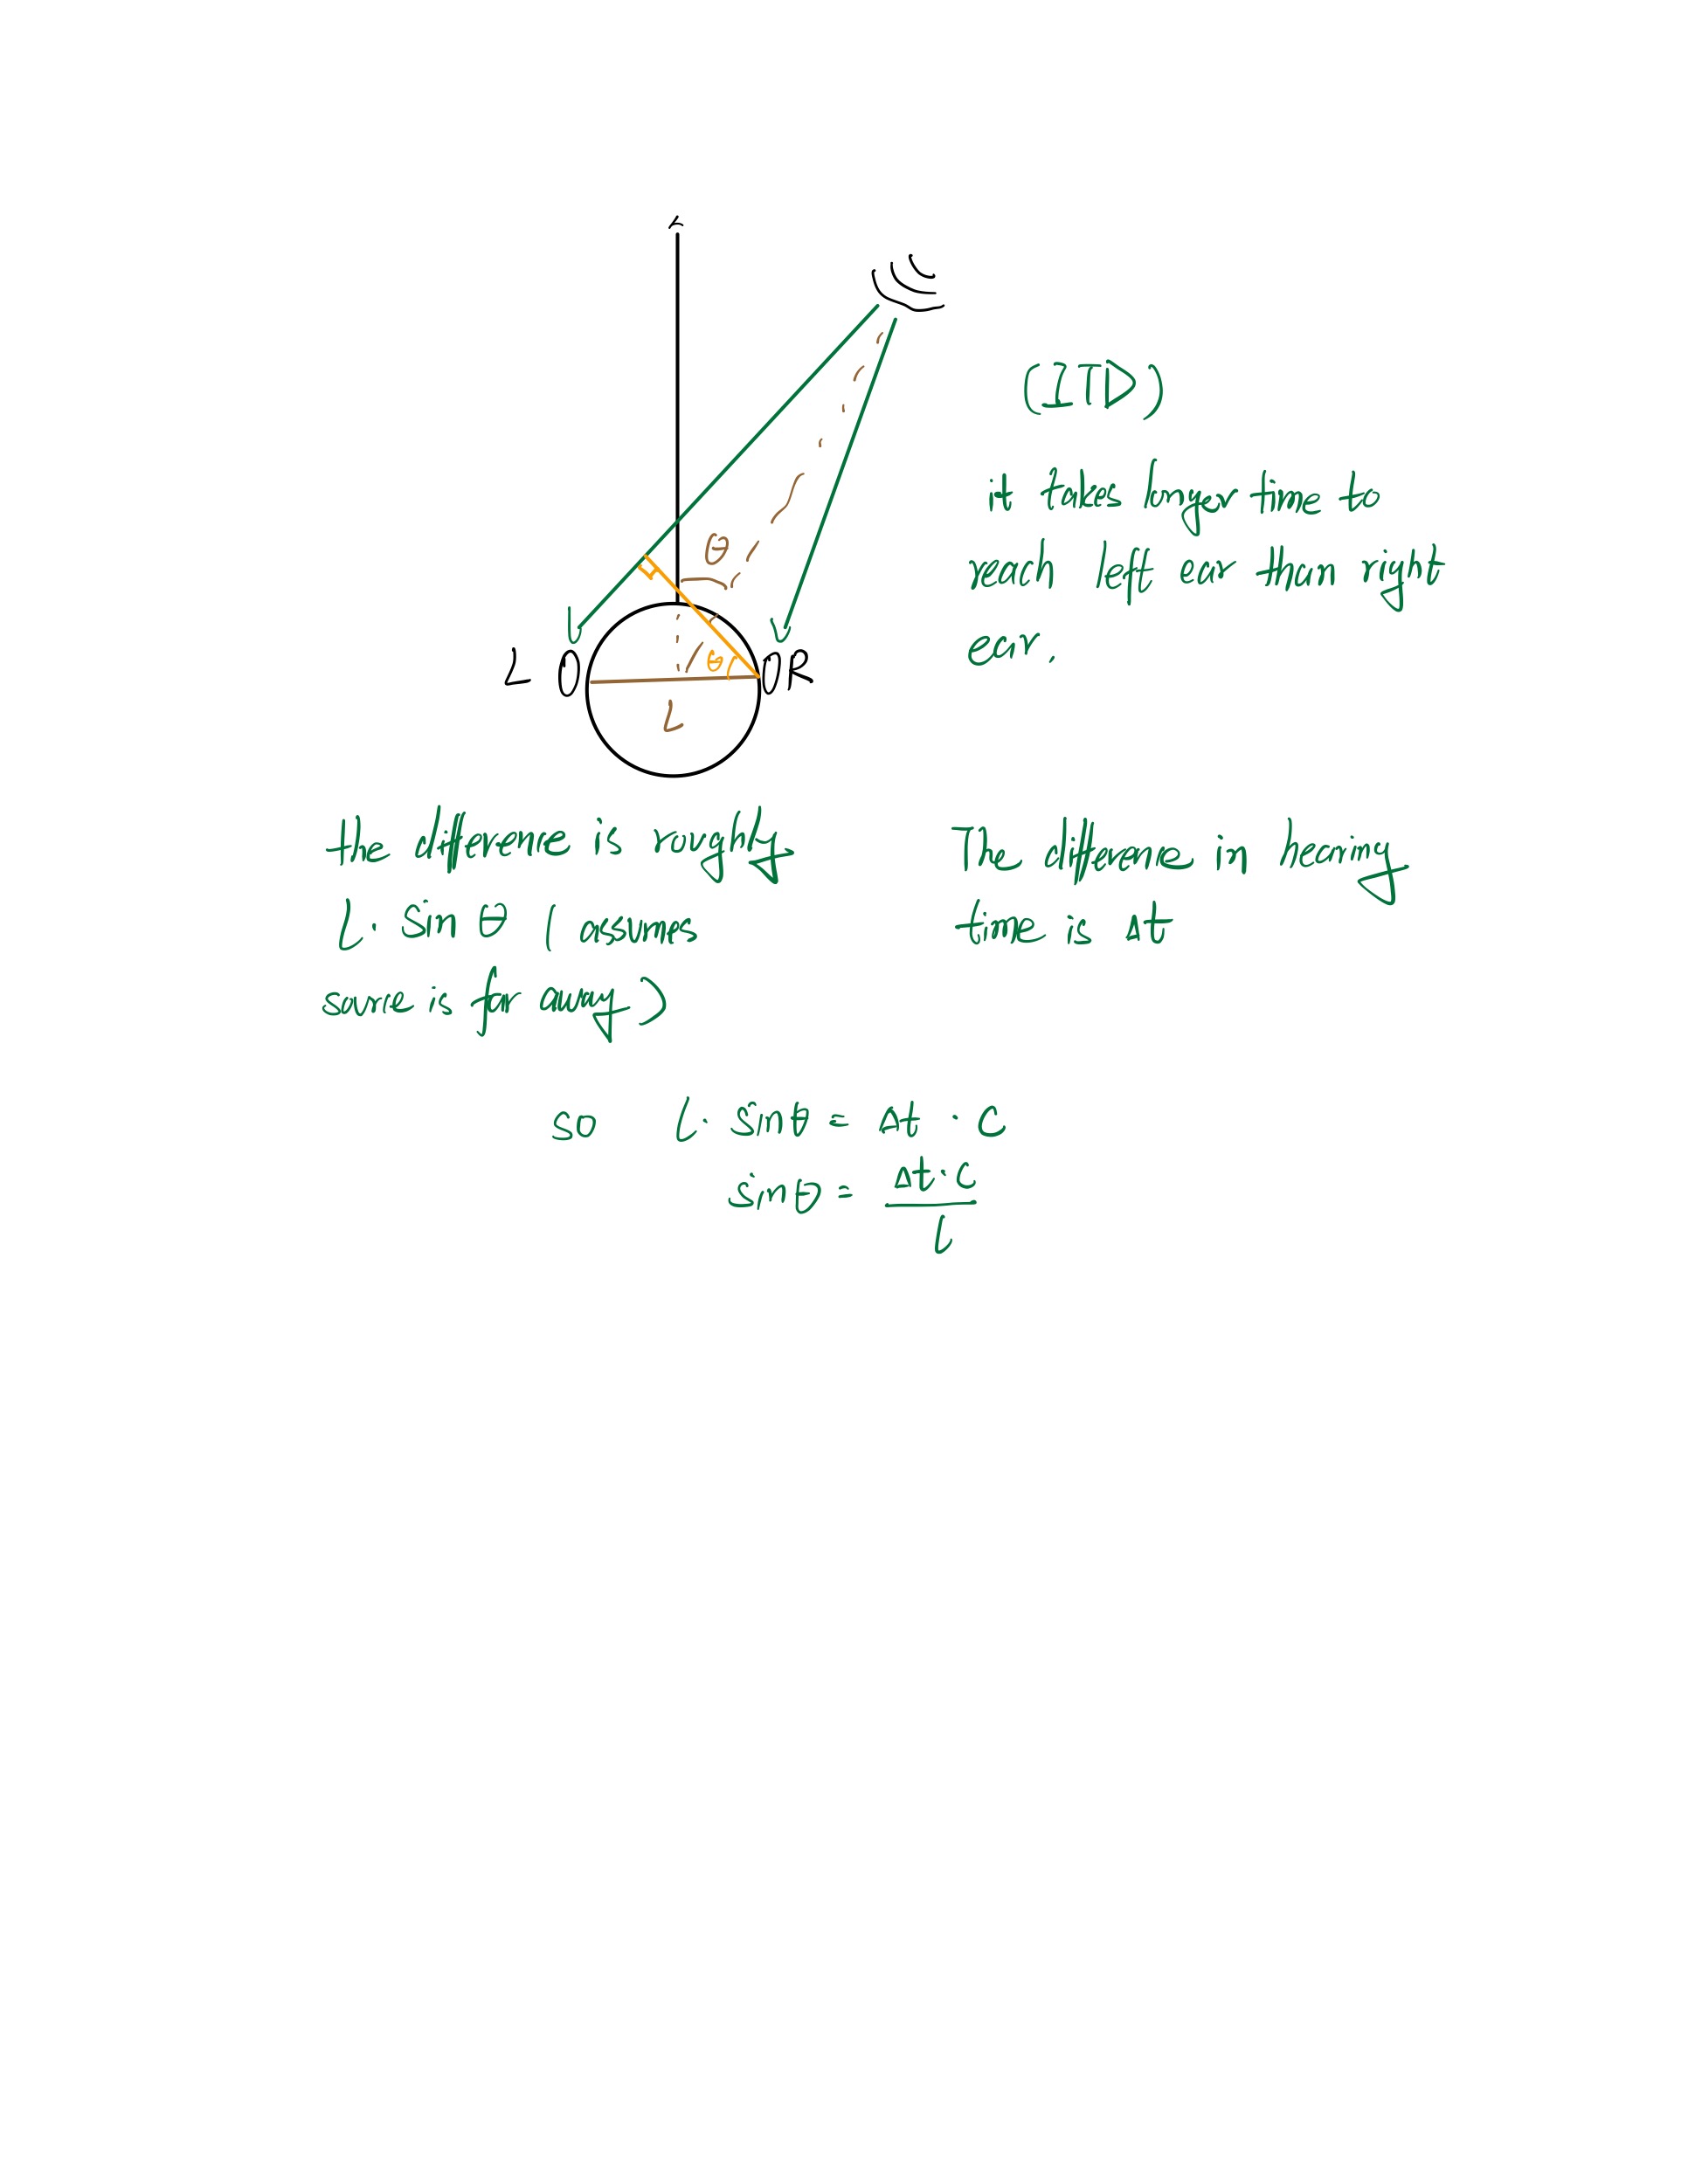 θ
(ITD)
it takes longer time to
reach left ear than right
ear.
L
R
θ
L
the difference is roughly
l · sin θ ( assumes
source is far away)
The difference in hearing
time is Δt
so l · sinθ = Δt · C
sinθ = Δt · C / l